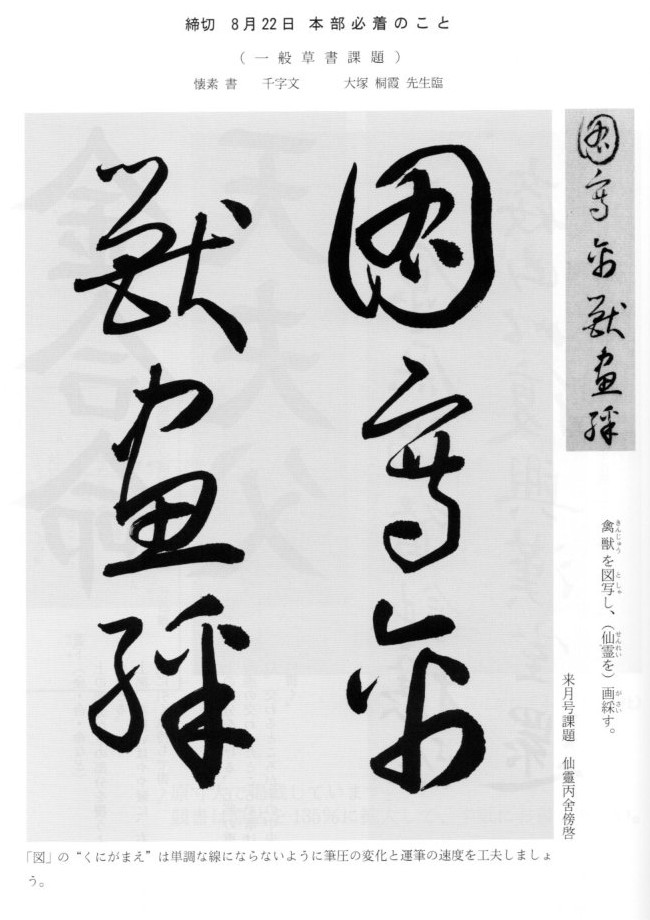 締切　8月22日　本部必着のこと
（一般草書課題）
懐素 書　千字文　大塚 桐霞 先生臨
圖寫禽
獸畫綵
圖寫禽獸畫綵
禽獣を図写し、（仙霊を）画綵す。
きんじゅう　としゃ　せんれい　がさい
来月号課題　仙靈丙舎傍啓
「図」の“くにがまえ”は単調な線にならないように筆圧の変化と運筆の速度を工夫しましょ
う。